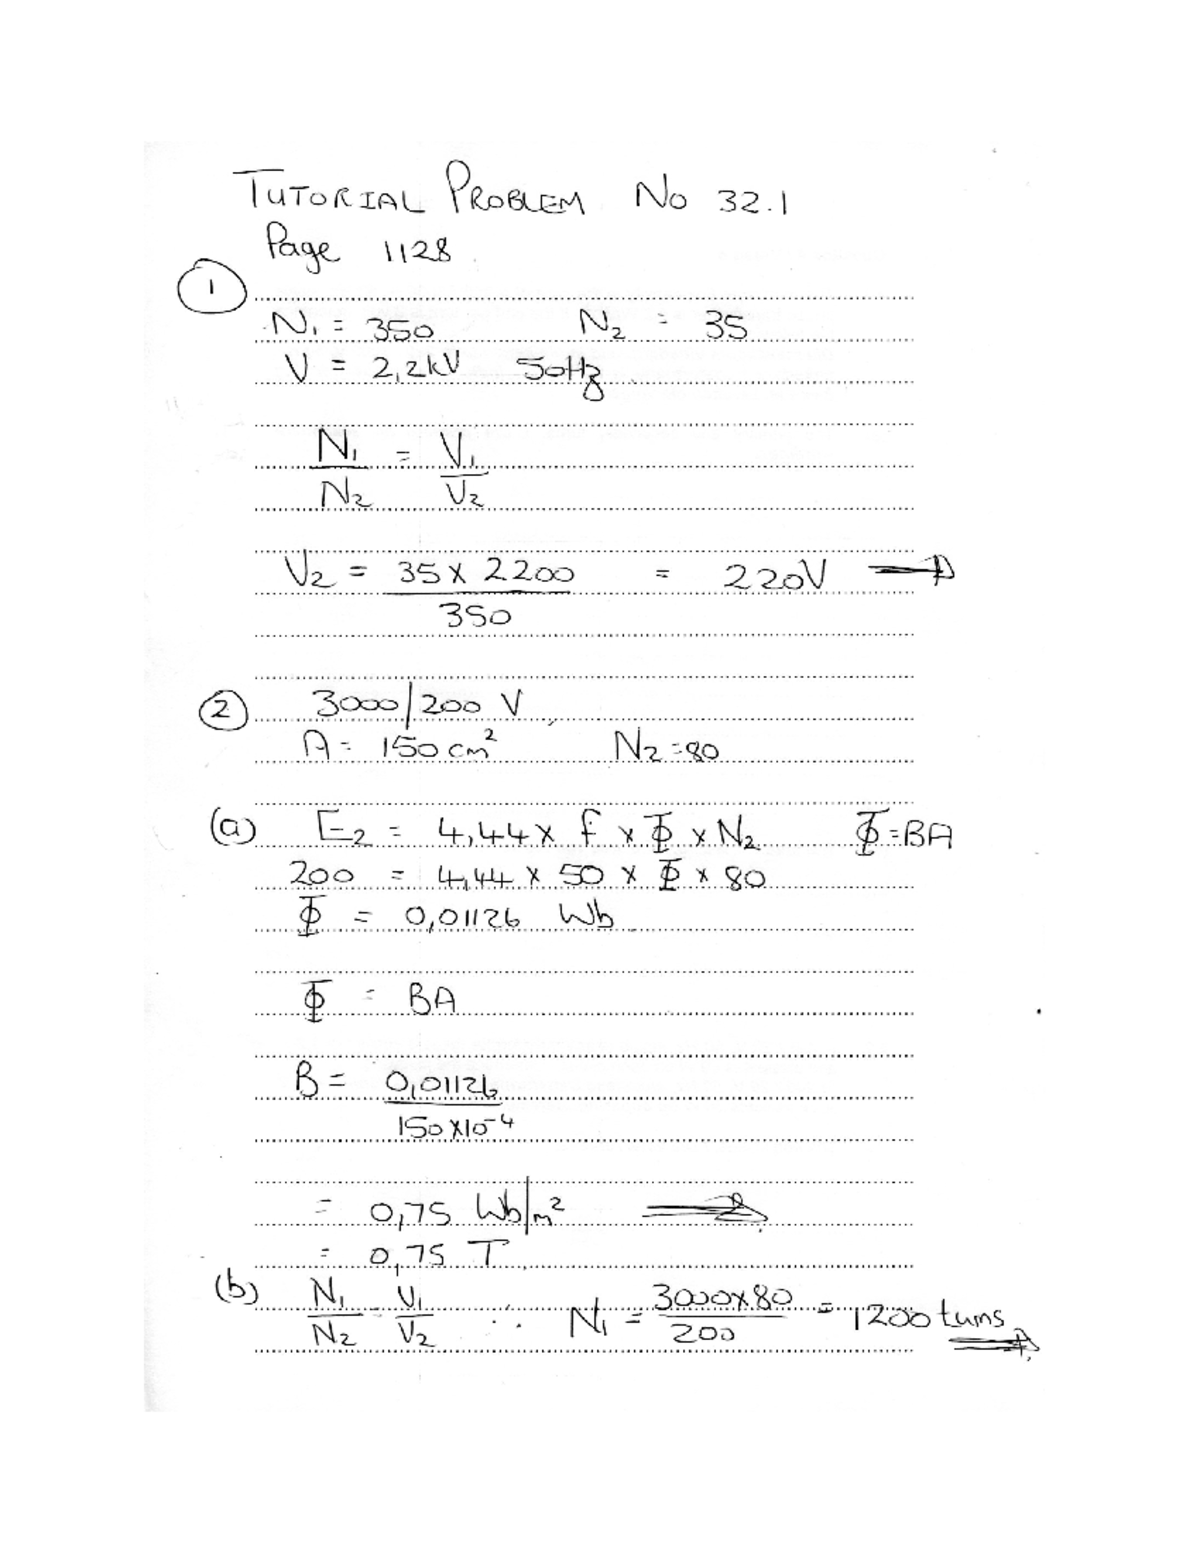 TUTORIAL PROBLEM No 32.1
Page 1128
1
N₁ = 350 N₂ = 35
V = 2,2kV 50Hz
N₁/N₂ = V₁/V₂
V₂ = 35 x 2200 / 350 = 220V
2 3000/200 V
A = 150 cm² N₂ = 80
(a) E₂ = 4,44 x f x Φ x N₂ Φ = BA
200 = 4,44 x 50 x Φ x 80
Φ = 0,01126 Wb
Φ = BA
B = 0,01126 / 150 x10⁻⁴
= 0,75 Wb/m²
= 0,75 T
(b) N₁/N₂ = V₁/V₂ ∴ N₁ = 3000x80 / 200 = 1200 turns